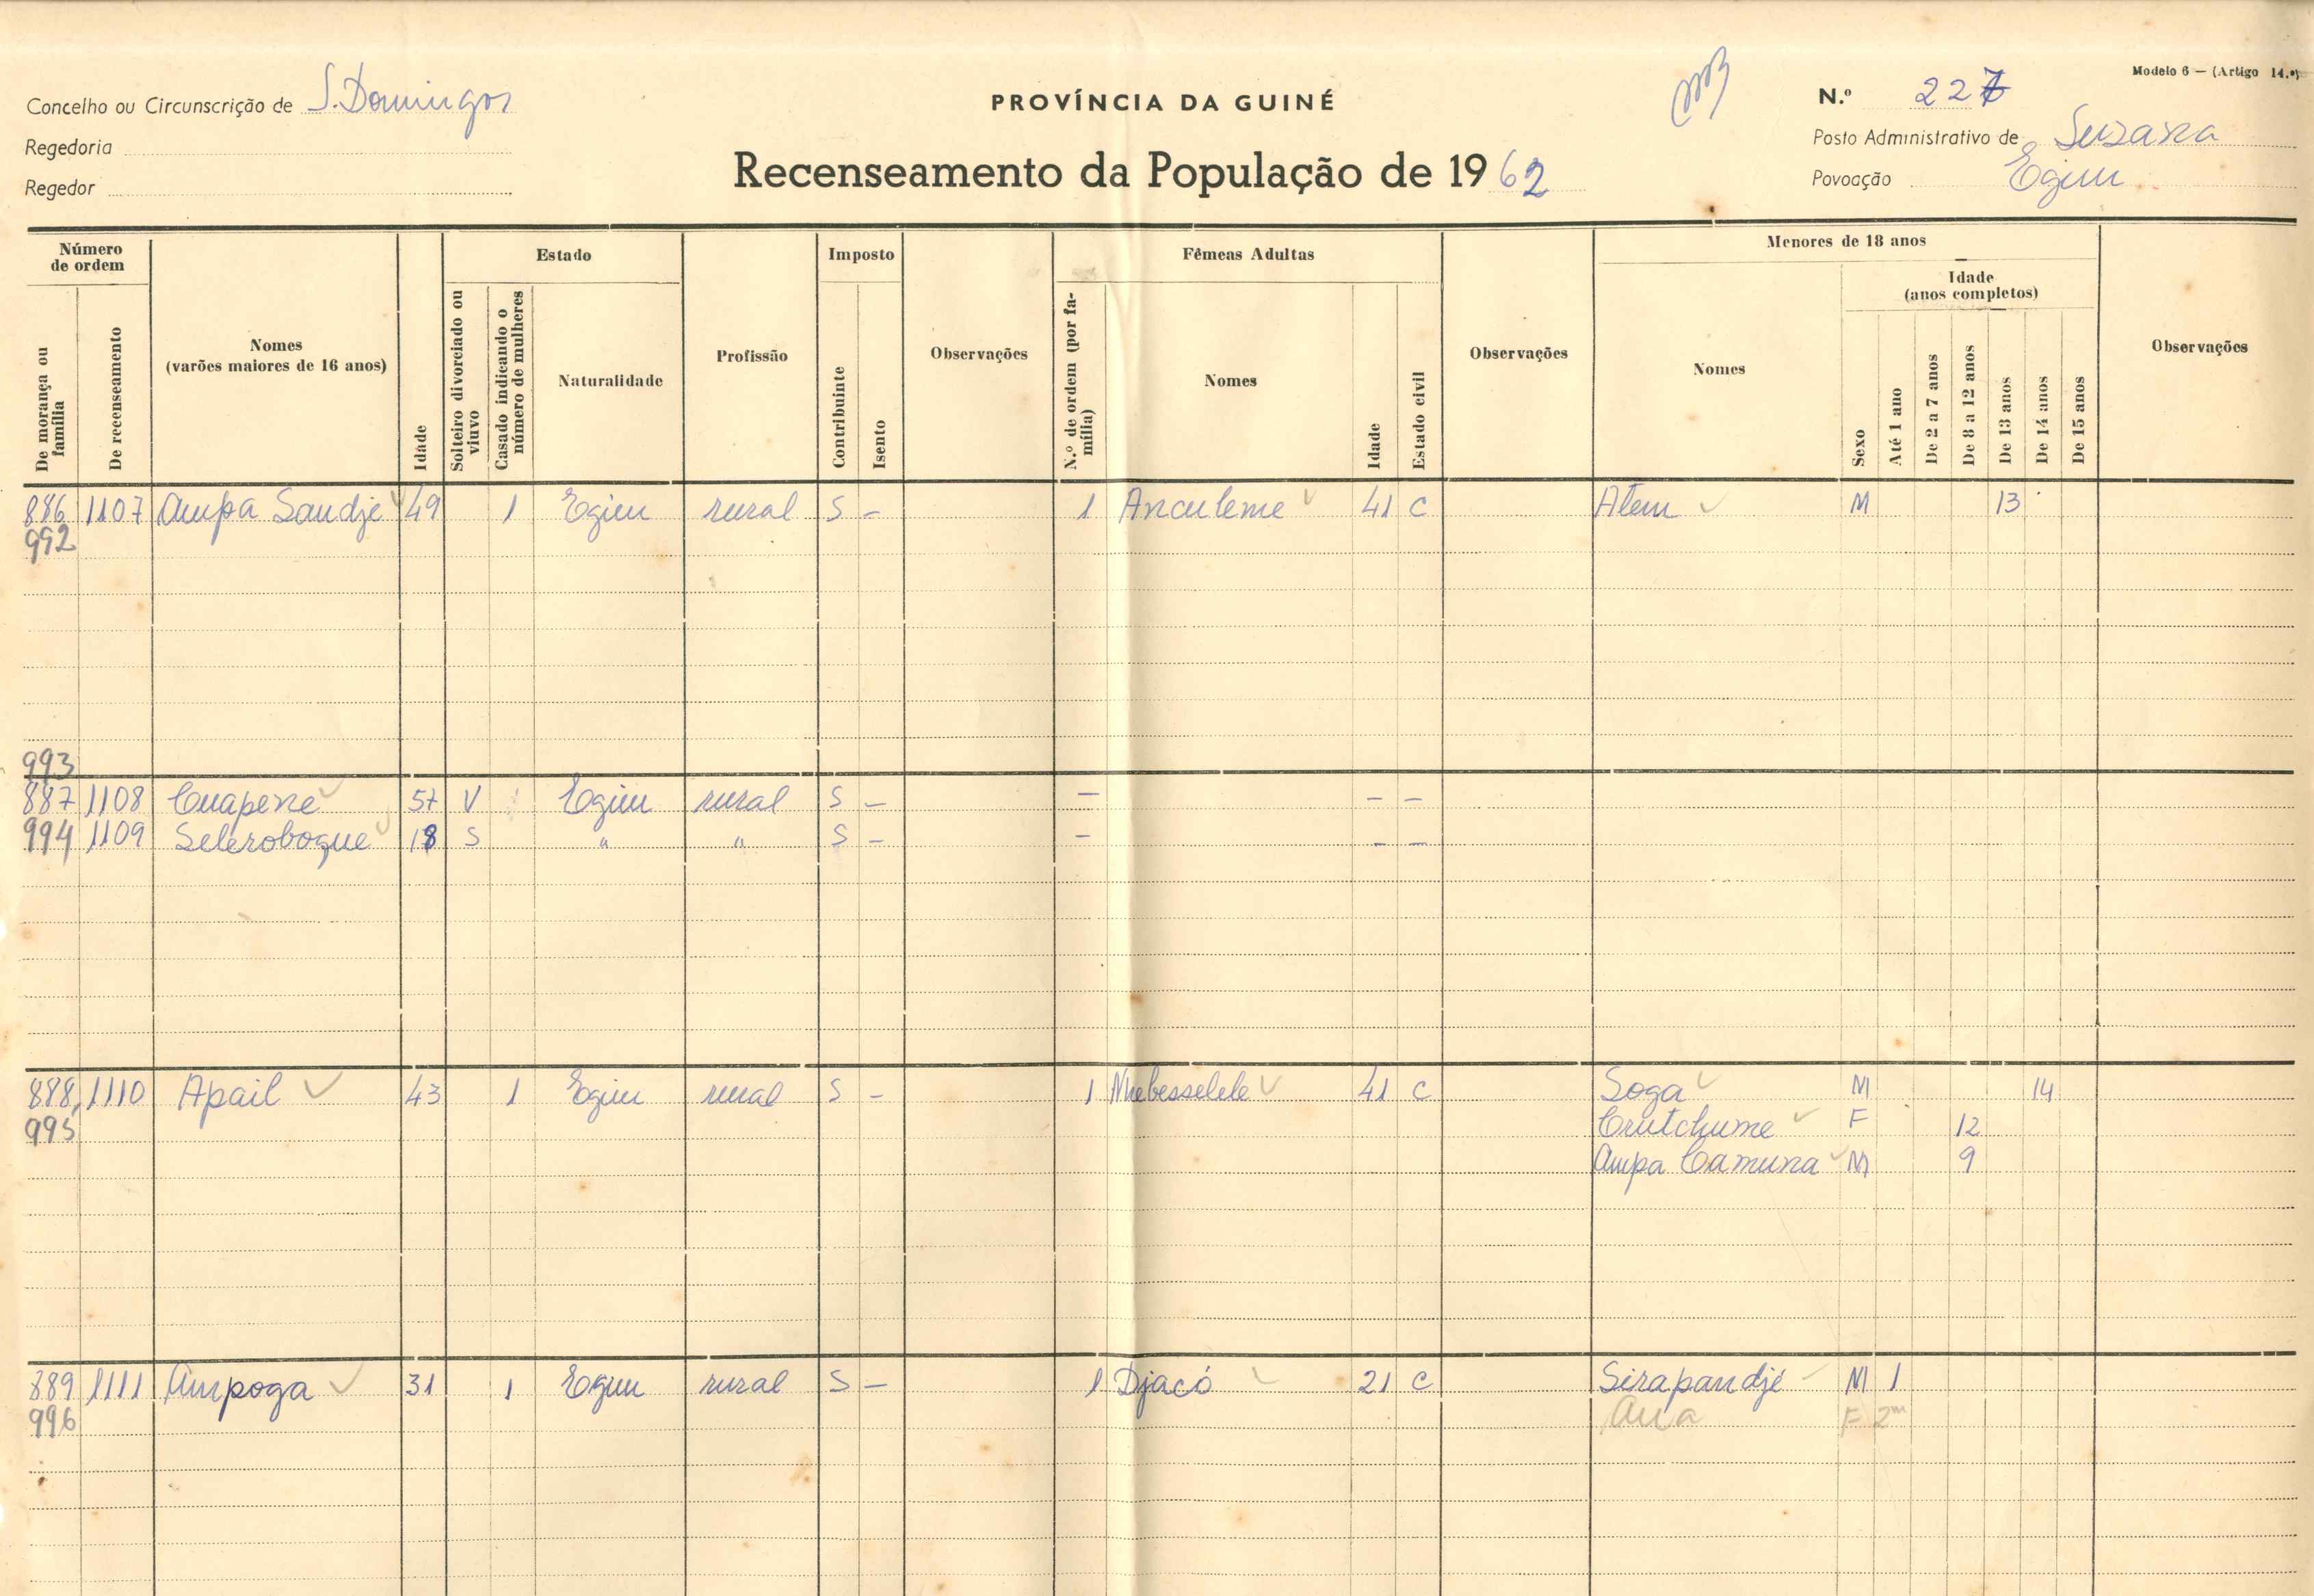 Modelo 6 — (Artigo 14.º)
Concelho ou Circunscrição de S. Domingos
PROVÍNCIA DA GUINÉ
N.º 227
Regedoria
Posto Administrativo de Suzana
Regedor
Recenseamento da População de 1962
Povoação Egim
Número de ordem
De morança ou família
De recenseamento
Nomes
(varões maiores de 16 anos)
Idade
Estado
Solteiro divorciado ou viuvo
Casado indicando o número de mulheres
Naturalidade
Profissão
Imposto
Contribuinte
Isento
Observações
Fêmeas Adultas
N.º de ordem (por família)
Nomes
Idade
Estado civil
Observações
Menores de 18 anos
Nomes
Sexo
Idade
(anos completos)
Até 1 ano
De 2 a 7 anos
De 8 a 12 anos
De 13 anos
De 14 anos
De 15 anos
Observações
886 1107 Ampa Sandjé 49 1 Egim rural S – 1 Anculeme 41 C Alem M 13
992
993
887 1108 Cuapene 57 V Egim rural S – – – –
994 1109 Seleroboque 18 S " " S – – – –
888 1110 Apail 43 1 Egim rural S – 1 41 C Soga M 14
995 Crutchume F 12
Ampa Camuna M 9
889 1111 Ampoga 31 1 Egim rural S – 1 Djacó 21 C Sirapandjé M 1
996 Ana F 2m